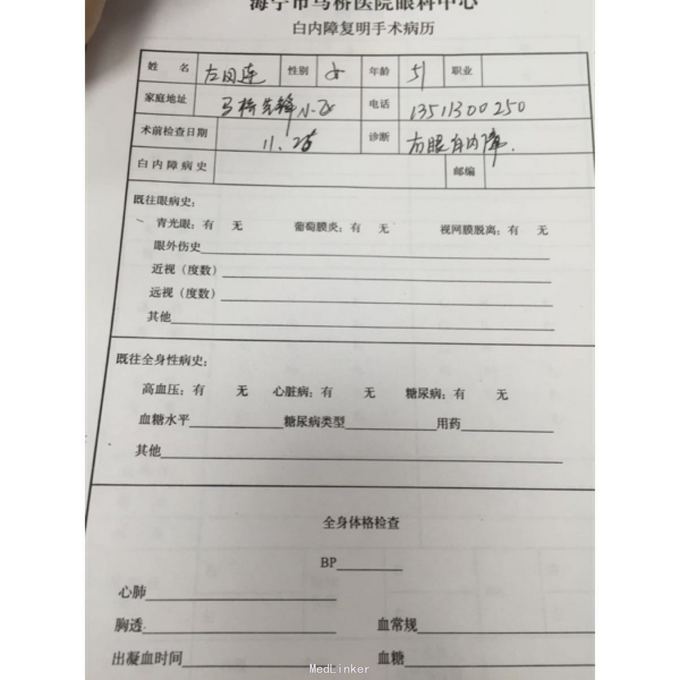 海宁市马桥医院眼科中心
白内障复明手术病历
姓 名 性别 女 年龄 51 职业
家庭地址 马桥先锋小区 电话 13511300250
术前检查日期 11.25 诊断 右眼白内障.
白内障病史 邮编
既往眼病史:
青光眼: 有 无 葡萄膜炎: 有 无 视网膜脱离: 有 无
眼外伤史
近视 (度数)
远视 (度数)
其他
既往全身性病史:
高血压: 有 无 心脏病: 有 无 糖尿病: 有 无
血糖水平 糖尿病类型 用药
其他
全身体格检查
BP
心肺
胸透 血常规
出凝血时间 血糖
MedLinker